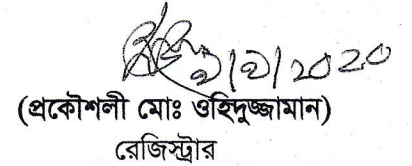 ২/২/2020
(প্রকৌশলী মোঃ ওহিদুজ্জামান)
রেজিস্ট্রার